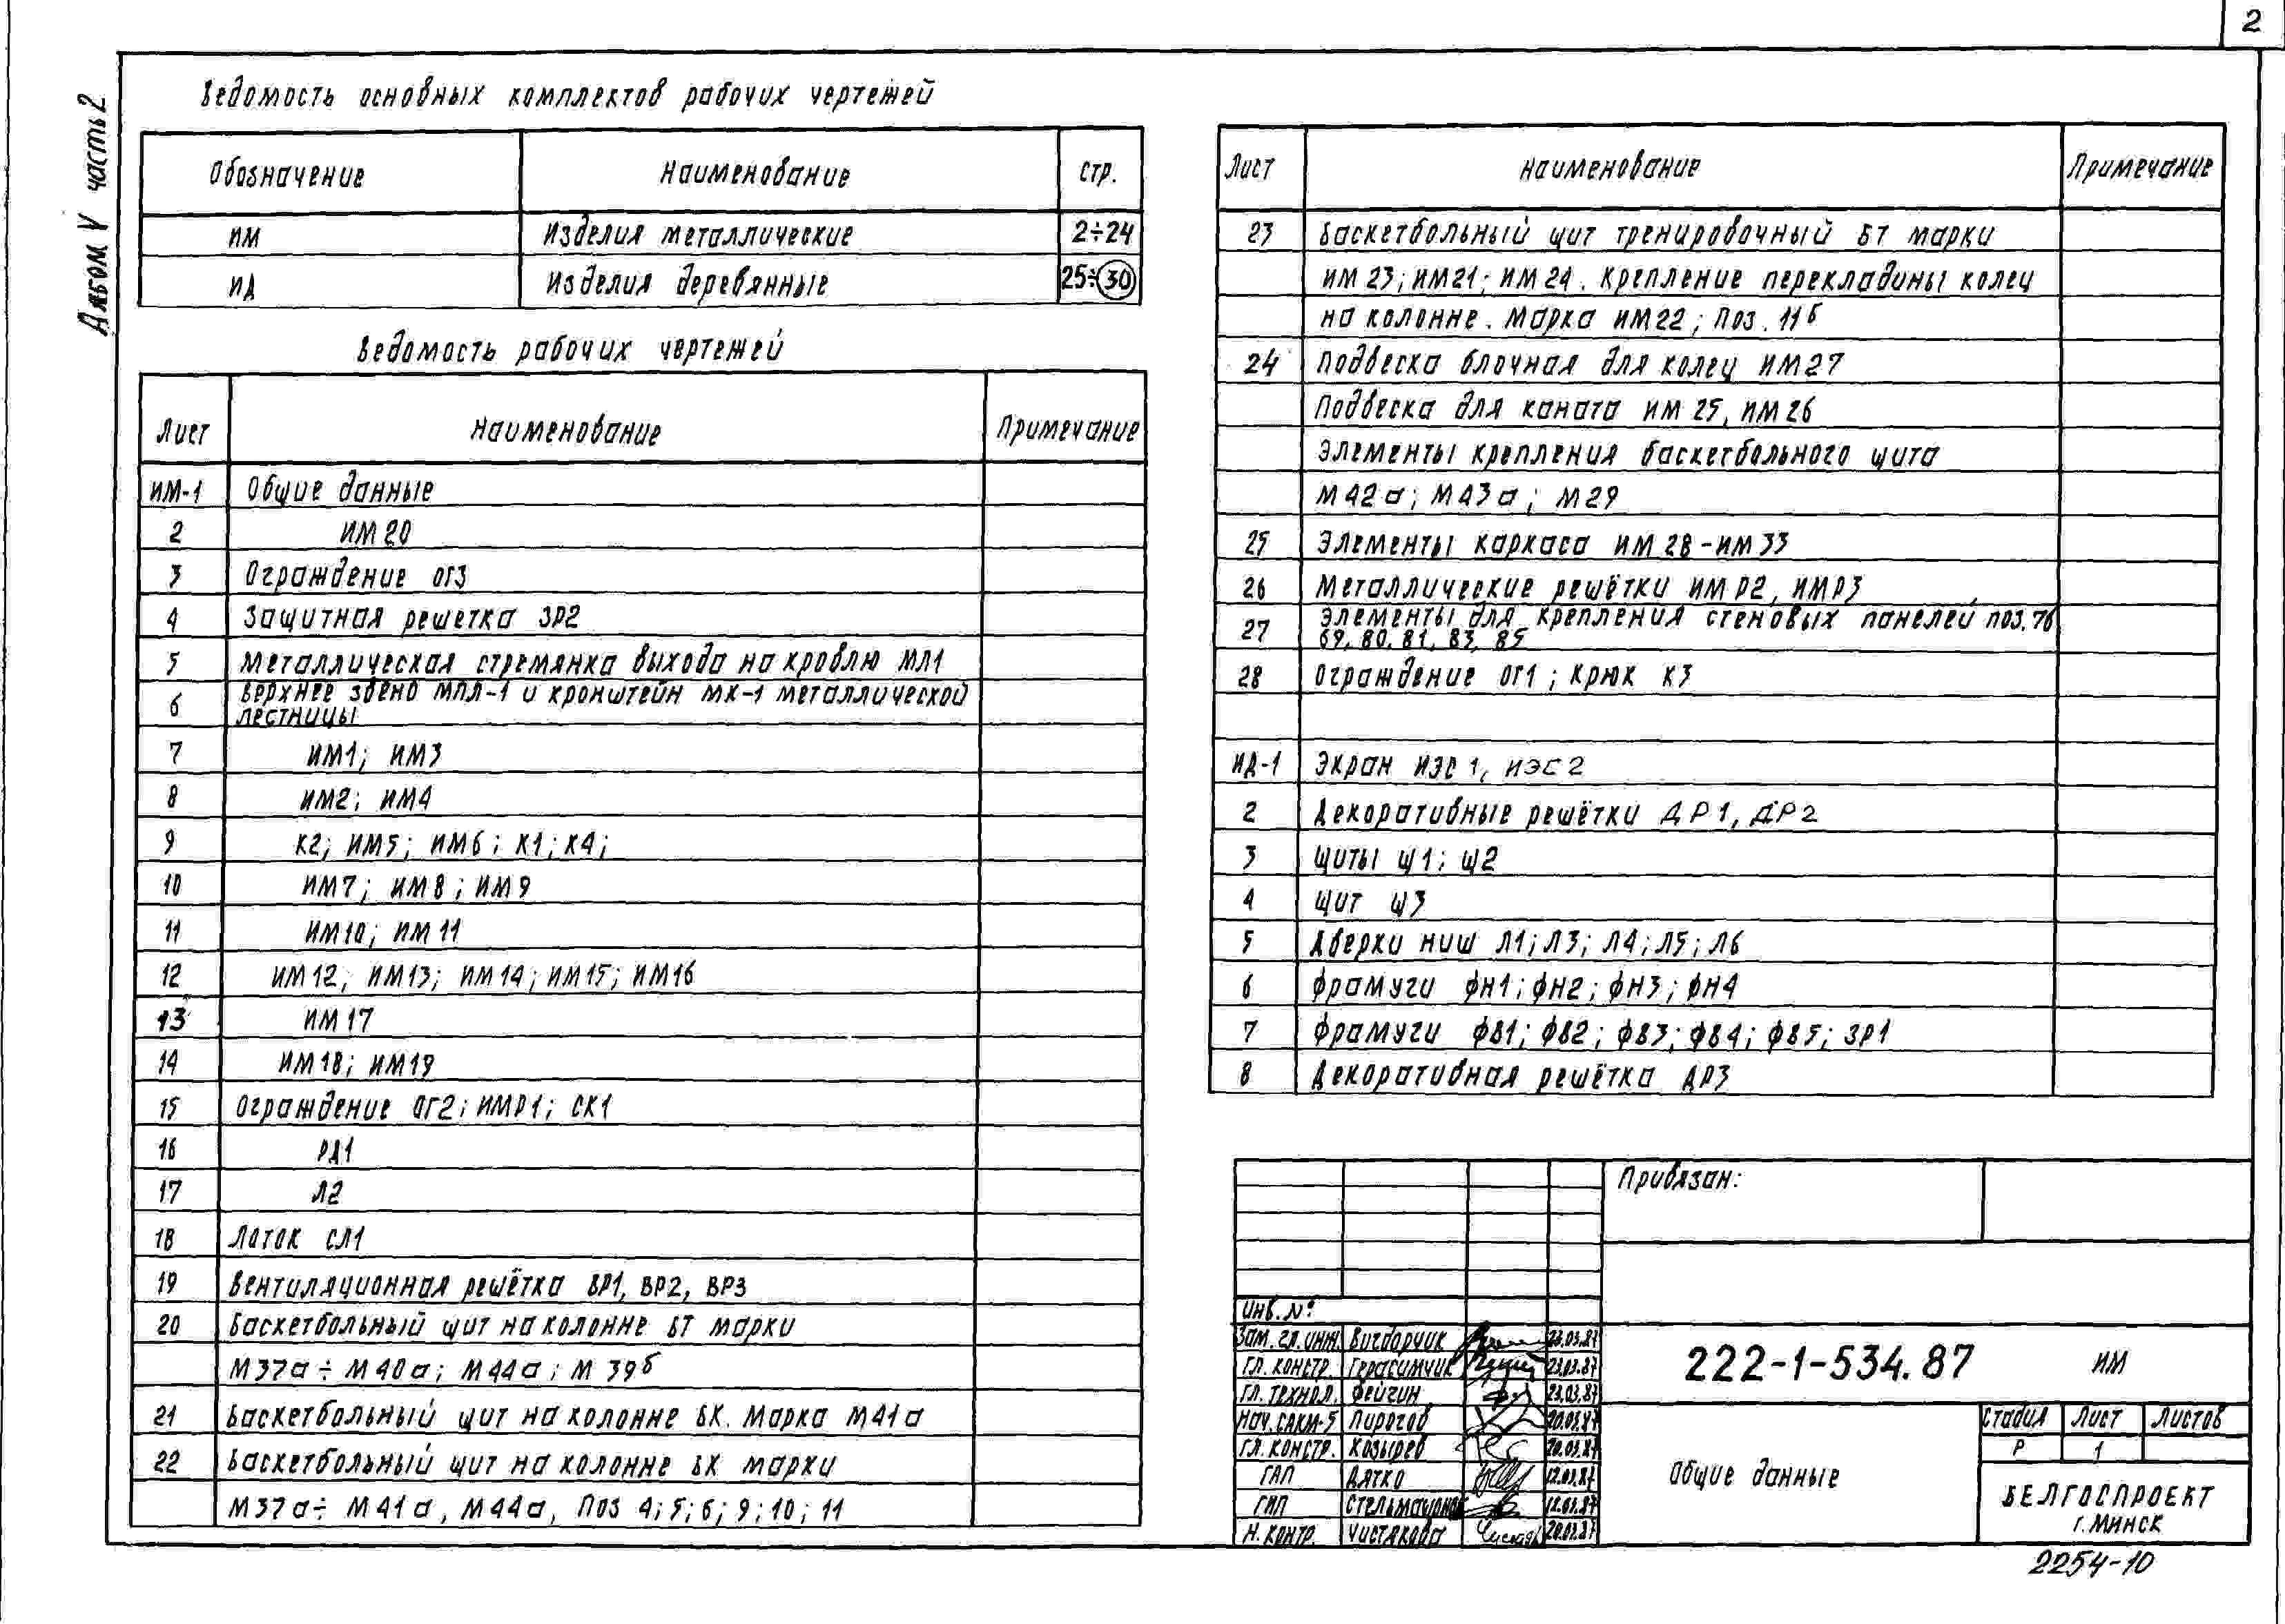 2
Альбом V часть 2
Ведомость основных комплектов рабочих чертежей
Обозначение Наименование стр.
ИМ Изделия металлические 2÷24
ИД Изделия деревянные 25÷30
Ведомость рабочих чертежей
Лист Наименование Примечание
ИМ-1 Общие данные
2 ИМ20
3 Ограждение ОГ3
4 Защитная решетка ЗР2
5 Металлическая стремянка выхода на кровлю МЛ1
6 Верхнее звено МПЛ-1 и кронштейн МК-1 металлической
лестницы
7 ИМ1; ИМ3
8 ИМ2; ИМ4
9 К2; ИМ5; ИМ6; К1; К4;
10 ИМ7; ИМ8; ИМ9
11 ИМ10; ИМ11
12 ИМ12; ИМ13; ИМ14; ИМ15; ИМ16
13 ИМ17
14 ИМ18; ИМ19
15 Ограждение ОГ2; ИМР1; СК1
16 РД1
17 Л2
18 Лоток СЛ1
19 Вентиляционная решётка ВР1, ВР2, ВР3
20 Баскетбольный щит на колонне БТ марки
М37а÷М40а; М44а; М39б
21 Баскетбольный щит на колонне БК. Марка М41а
22 Баскетбольный щит на колонне БК марки
М37а÷М41а, М44а, Поз 4; 5; 6; 9; 10; 11
Лист Наименование Примечание
23 Баскетбольный щит тренировочный БТ марки
ИМ23; ИМ21; ИМ24. Крепление перекладины колец
на колонне. Марка ИМ22; Поз. 11б
24 Подвеска блочная для колец ИМ27
Подвеска для каната ИМ25, ИМ26
Элементы крепления баскетбольного щита
М42а; М43а; М29
25 Элементы каркаса ИМ28-ИМ33
26 Металлические решётки ИМР2, ИМР3
27 Элементы для крепления стеновых панелей поз. 76
69, 80, 81, 83, 85
28 Ограждение ОГ1; Крюк К3
ИД-1 Экран ИЭС1, ИЭС2
2 Декоративные решётки ДР1, ДР2
3 Щиты Щ1; Щ2
4 Щит Щ3
5 Дверки ниш Л1; Л3; Л4; Л5; Л6
6 Фрамуги ФН1; ФН2; ФН3; ФН4
7 Фрамуги ФВ1; ФВ2; ФВ3; ФВ4; ФВ5; ЗР1
8 Декоративная решётка ДР3
Привязан:
Инв. №
Зам. гл. инж. Вигдорчик 23.03.87
Гл. констр. Герасимчик 23.03.87
Гл. технол. Фейгин 23.03.87
Нач. САКМ-5 Пирогов 20.03.87
Гл. констр. Козырев 20.03.87
ГАП Дятко 12.03.87
ГИП 12.03.87
Н. контр. Чистякова 20.03.87
222-1-534.87 ИМ
Общие данные
Стадия Лист Листов
Р 1
БЕЛГОСПРОЕКТ
г. МИНСК
2254-10